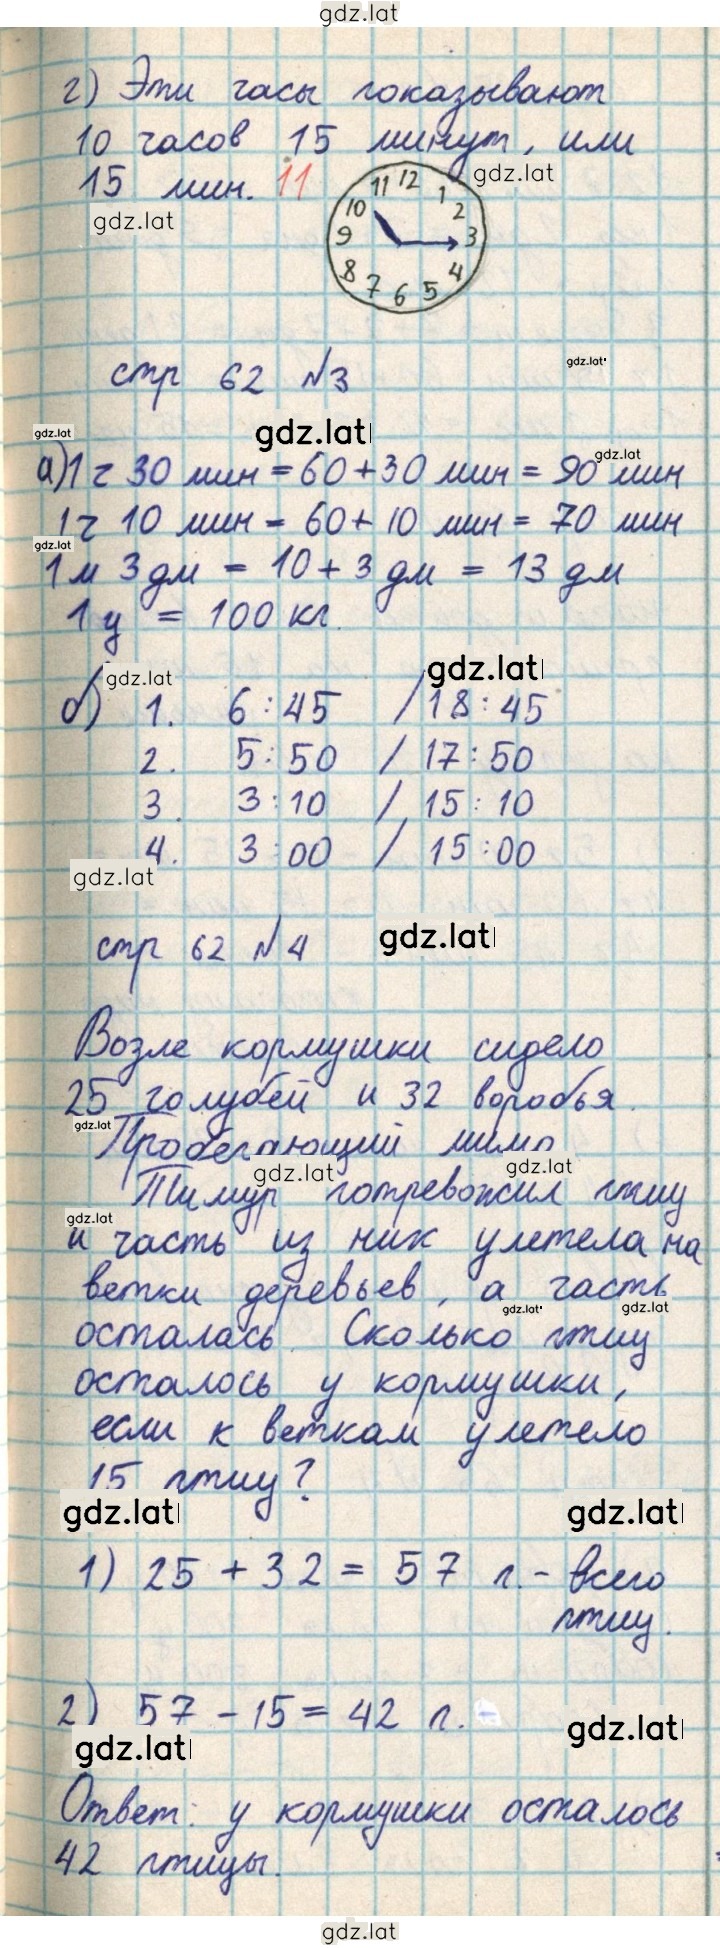 gdz.lat
г) Эти часы показывают
10 часов 15 минут, или
15 мин. 11
gdz.lat
gdz.lat
12
11
1
10
2
9
3
8
4
7
6
5
стр 62 №3
gdz.lat
gdz.lat
gdz.lat
gdz.lat
а) 1 ч 30 мин = 60 + 30 мин = 90 мин
1 ч 10 мин = 60 + 10 мин = 70 мин
gdz.lat
1 м 3 дм = 10 + 3 дм = 13 дм
1 ц = 100 кг.
gdz.lat
gdz.lat
б) 1. 6:45 / 18:45
2. 5:50 / 17:50
3. 3:10 / 15:10
4. 3:00 / 15:00
gdz.lat
стр 62 №4
gdz.lat
Возле кормушки сидело
25 голубей и 32 воробья.
gdz.lat
Пробегающий мимо
gdz.lat
gdz.lat
Тимур потревожил птиц
gdz.lat
и часть из них улетела на
ветки деревьев, а часть
gdz.lat
gdz.lat
осталась. Сколько птиц
осталось у кормушки,
если к веткам улетело
15 птиц?
gdz.lat
gdz.lat
1) 25 + 32 = 57 п. - всего
птиц.
2) 57 - 15 = 42 п. -
gdz.lat
gdz.lat
Ответ: у кормушки осталось
42 птицы.
gdz.lat